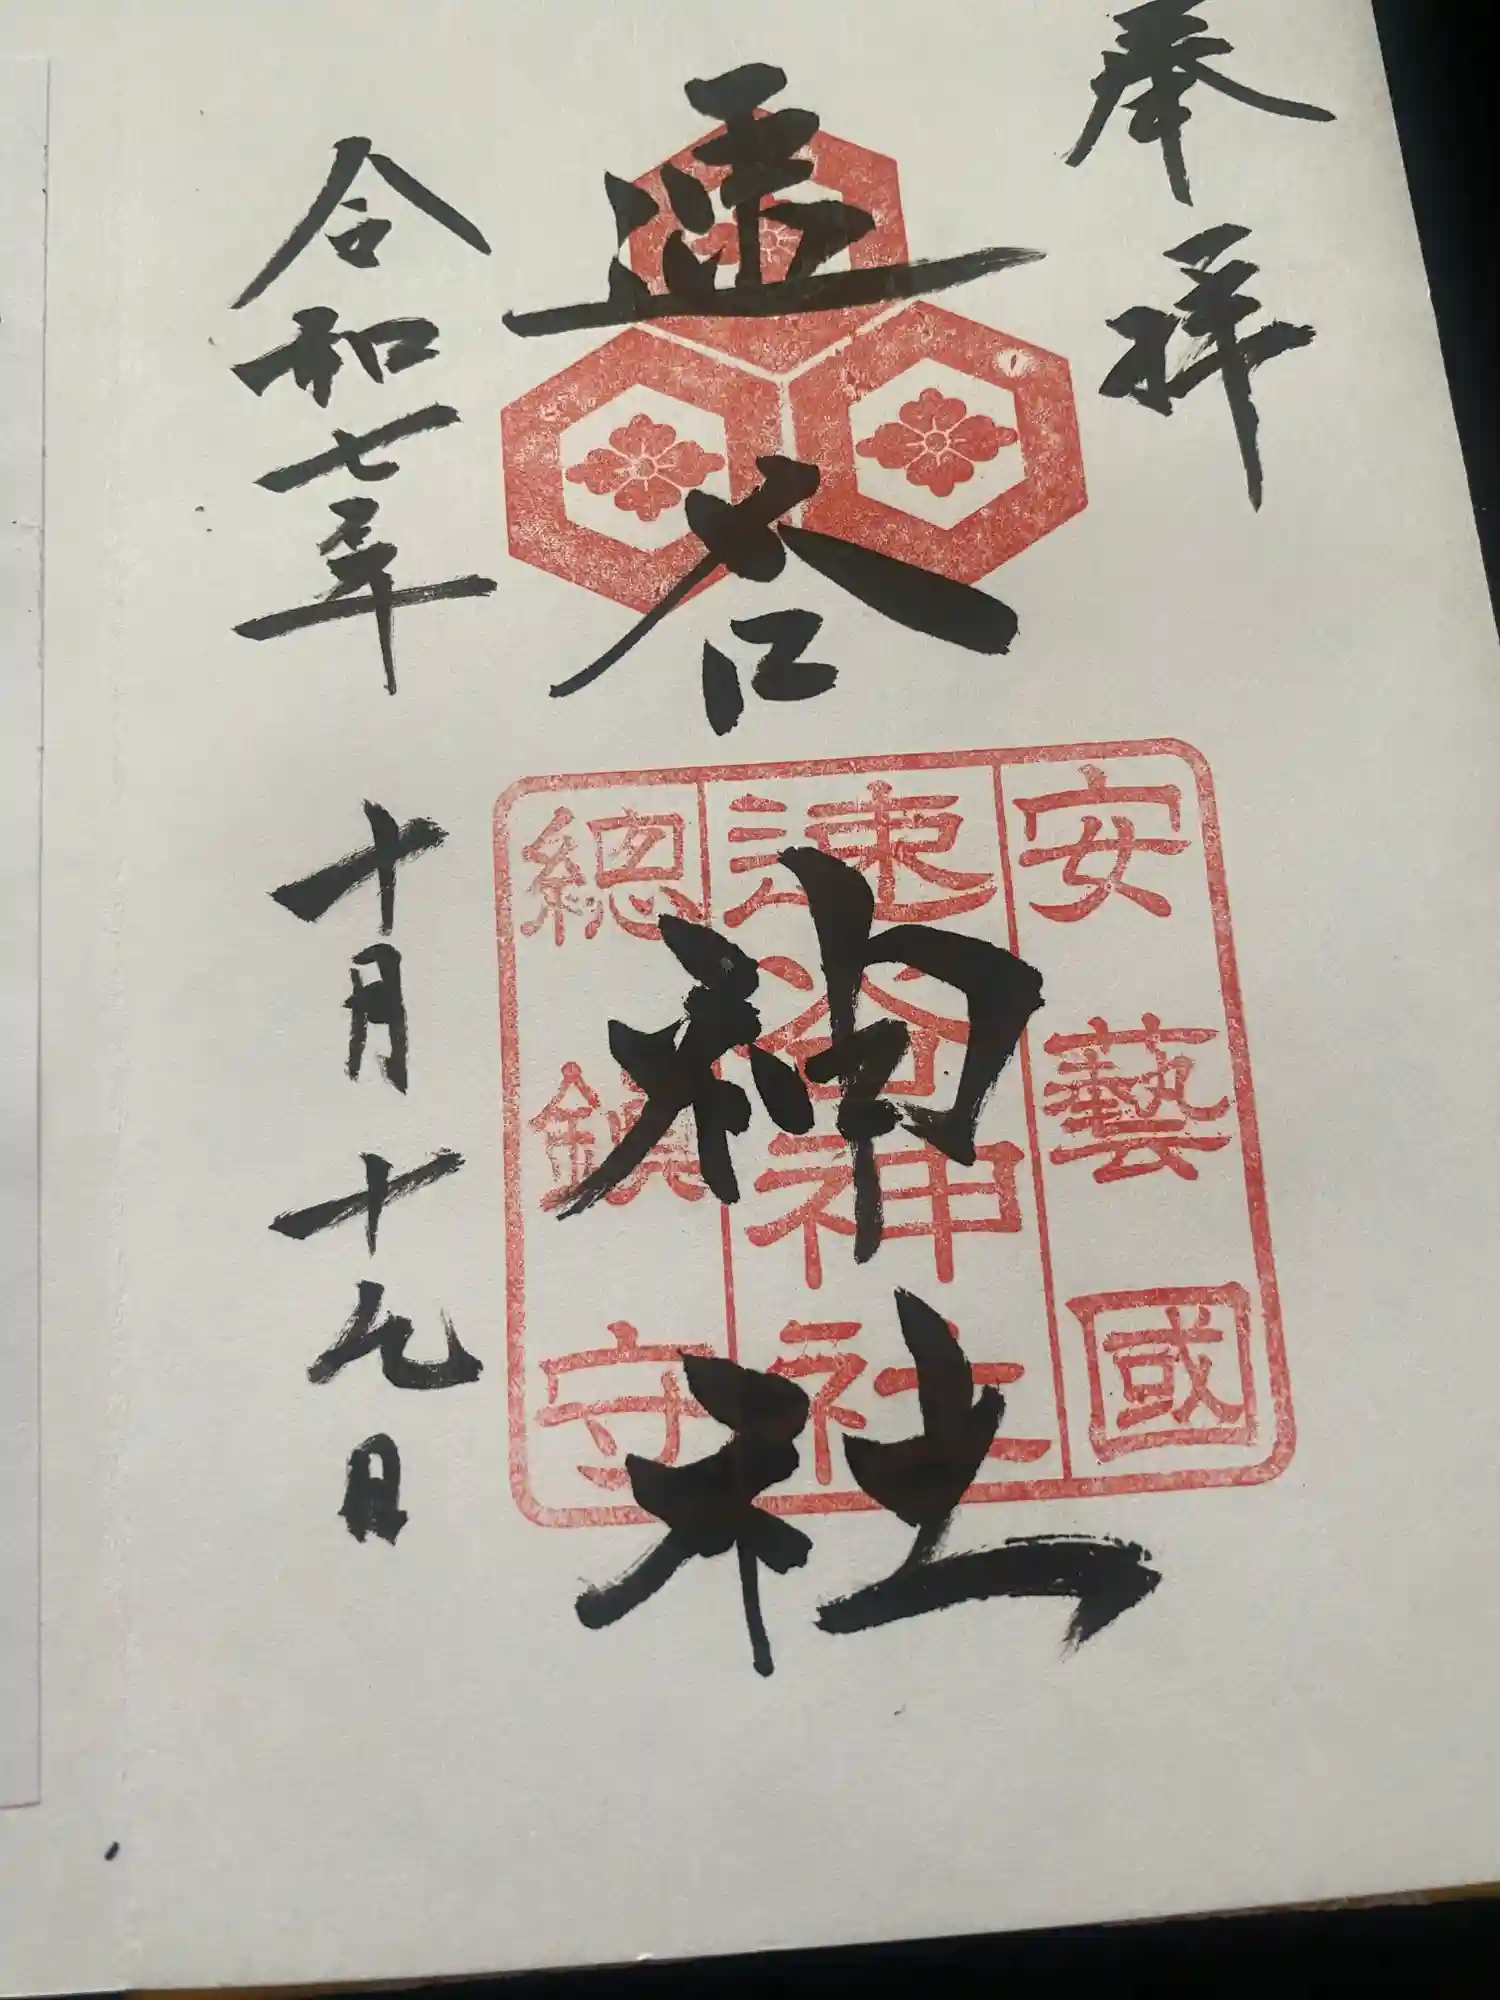 奉拝
速谷神社
令和七年 十月十九日
安藝國
速谷神社
總鎮守